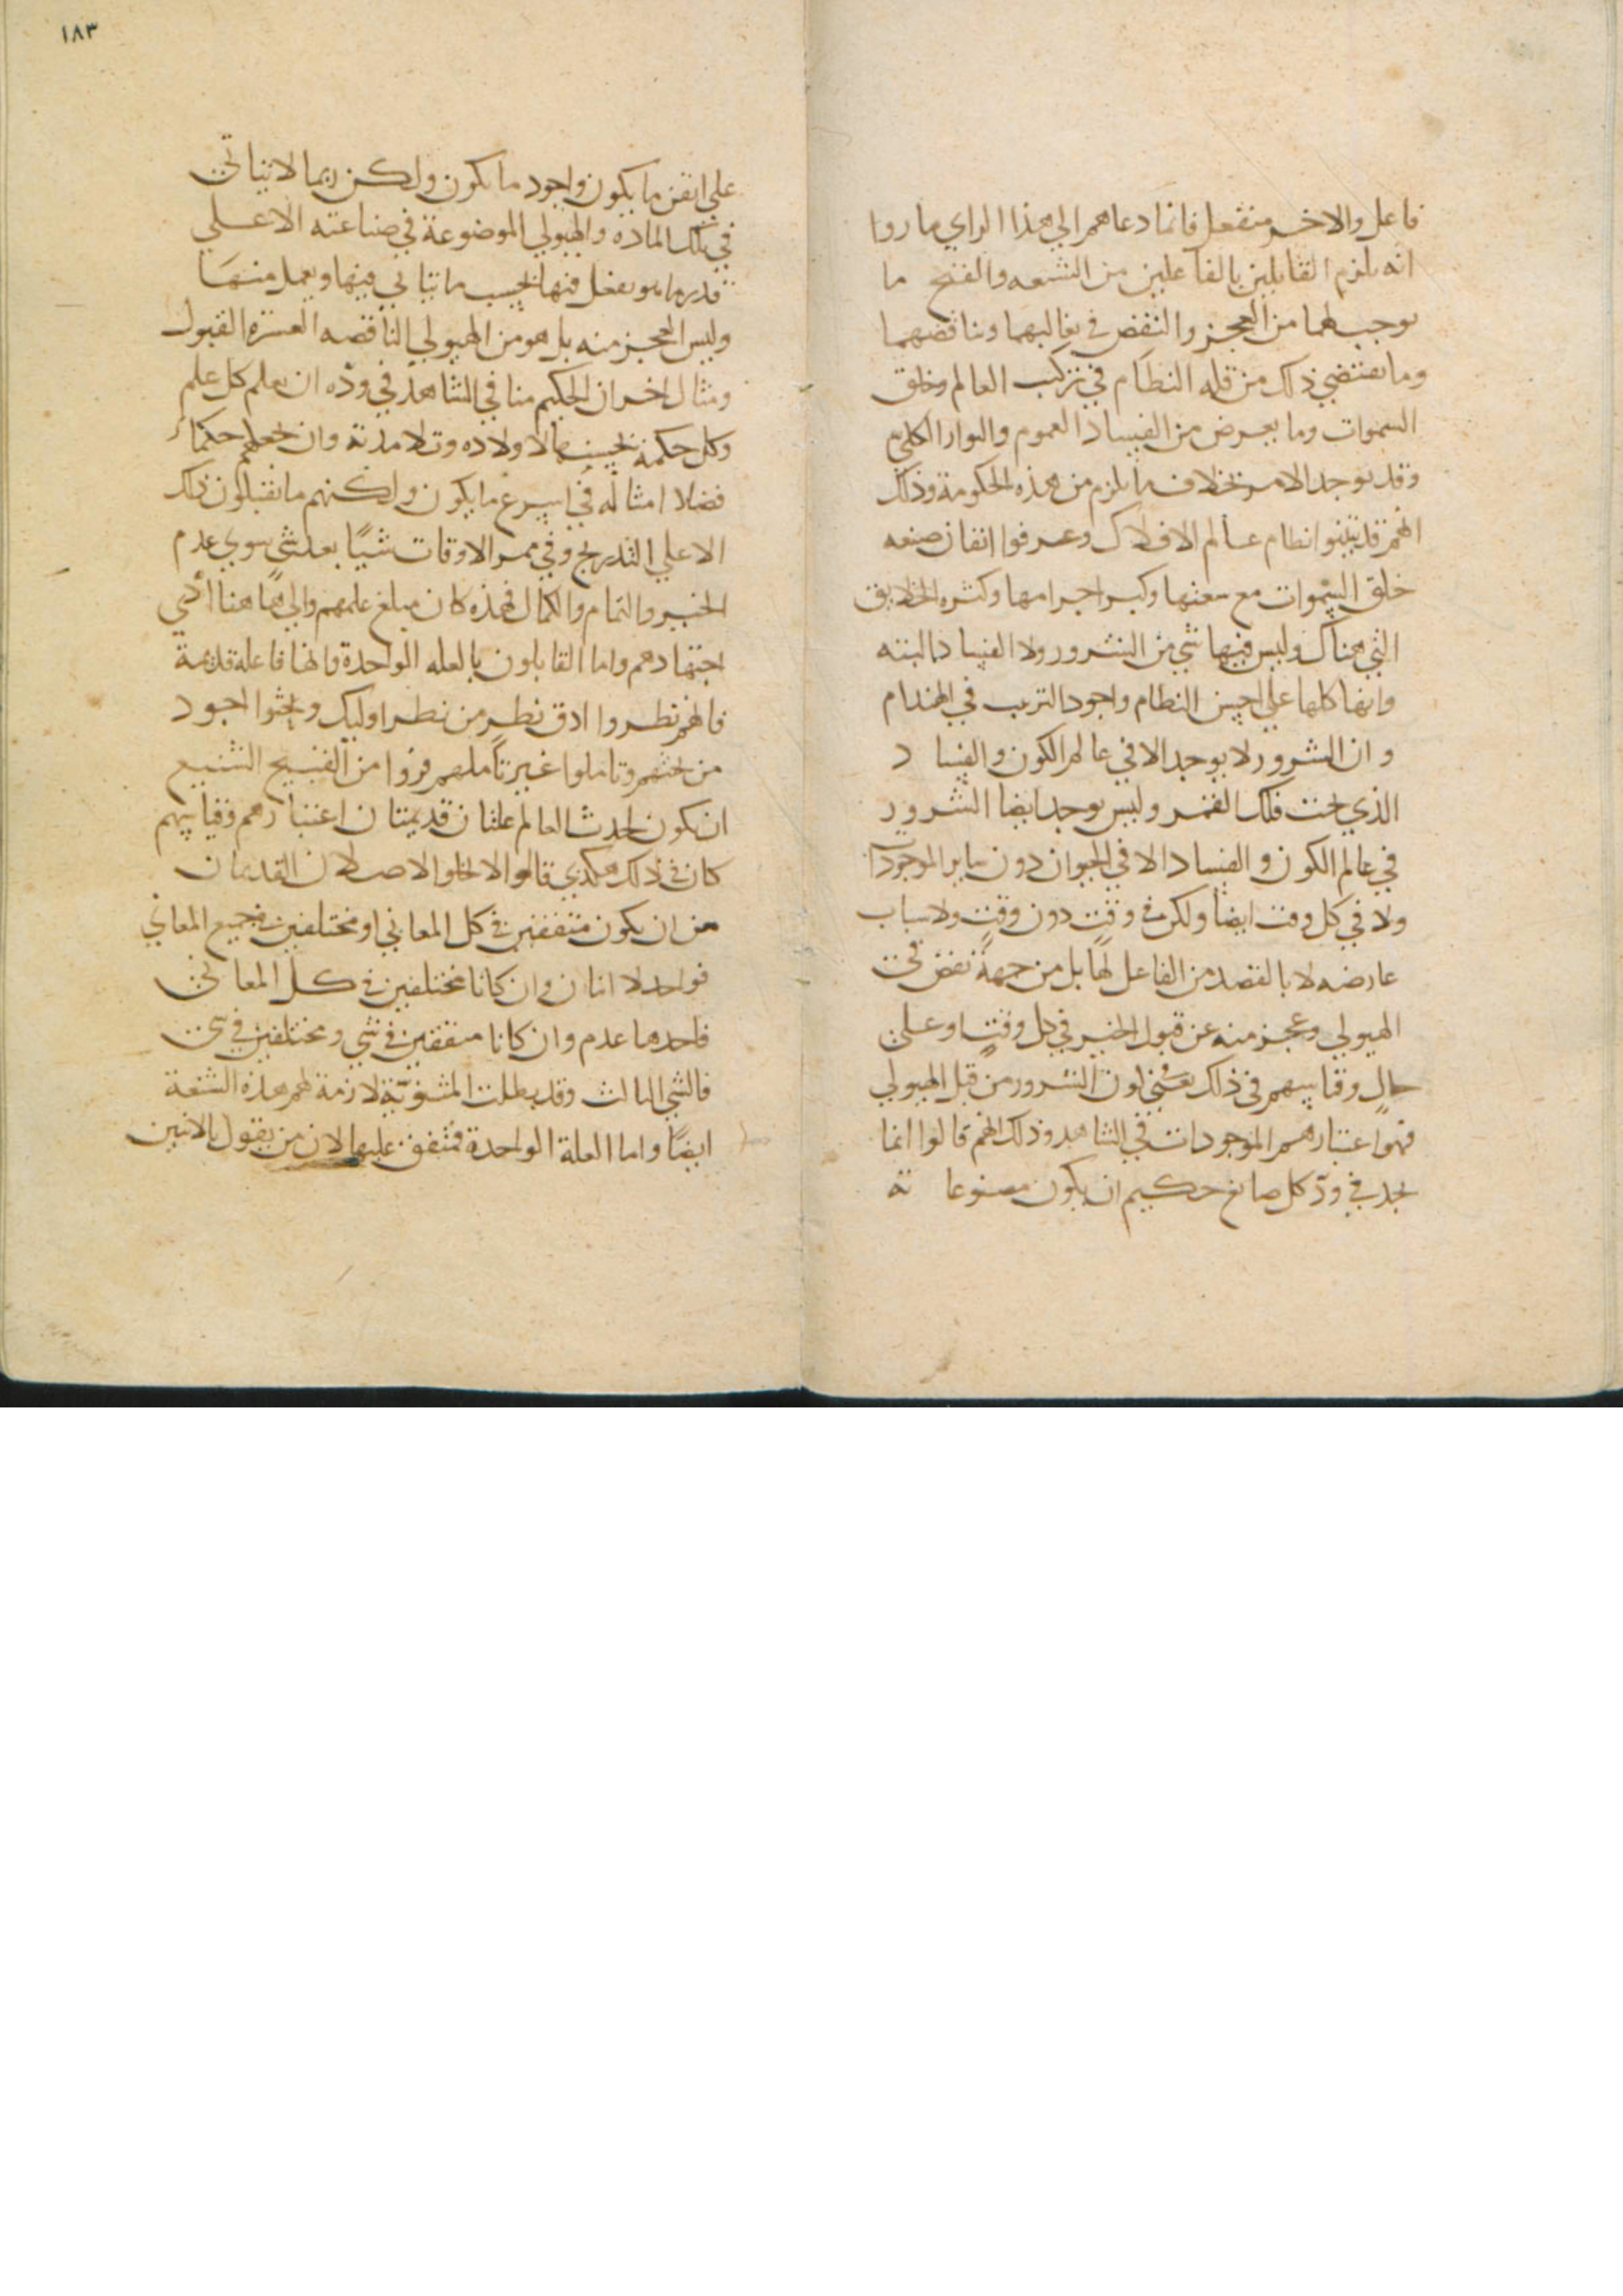 فاعل والاخر منفعل فانما دعاهم الي هذا الراي ما روا
انه يلزم القايلين بالفاعلين من الشنعه والقبح ما
يوجب لهما من العجز والنقص في تغالبهما وتناقضهما
وما يقتضي ذلك من قله النظام في تركيب العالم وخلق
السموات وما يعرض من الفساد العموم والبوار الكلي
وقد يوجد الامر بخلاف ما يلزم من هذه الحكومة وذلك
انهم قد تبينوا نظام عالم الافلاك وعرفوا اتقان صنعه
خلق السموات مع سعتها وكبر اجرامها وكثره الخلايق
التي هناك وليس فيها شي من الشرور ولا الفساد البته
وانها كلها علي احسن النظام واجود الترتيب في الهندام
وان الشرور لا يوجد الا في عالم الكون والفساد
الذي تحت فلك القمر وليس يوجد ايضا الشرور
في عالم الكون والفساد الا في الحيوان دون ساير الموجودات
ولا في كل وقت ايضا ولكن في وقت دون وقت ولاسباب
عارضه لا بالقصد من الفاعل لها بل من جهة نقص في
الهيولي وعجز منه عن قبول الخير في كل وقت او علي
حال وقياسهم في ذلك الشرور من قبل الهيولي
فهو اعتبارهم الموجودات في الشاهد وذلك انهم قالوا انما
نجد في ود كل صانع حكيم ان يكون مصنوعاته
١٨٣
علي اتقن ما يكون واجود ما يكون ولكن ربما لا يتاتي
في تلك الماده والهيولي الموضوعة في صناعته الا علي
قدر ما هو يفعل فيها بحسب ما يتاتي فيها ويعمل منها
وليس العجز منه بل هو من الهيولي الناقصه العسره القبول
ومثال اخر ان الحكيم منا في الشاهد في وده ان يعلم كل علم
وكل حكمة يحسنها لاولاده وتلامذته وان يجعلهم حكماء
فضلا امثاله في اسرع ما يكون ولكنهم ما يقبلون ذلك
الا علي التدريج وفي ممر الاوقات شيًا بعد شي سوي عدم
الخير والتمام والكمال فهذه كان مبلغ علمهم والي هاهنا ادي
اجتهادهم واما القايلون بالعله الواحدة وانها فاعلة قديمة
فانهم نظروا ادق نظر من نظر اوليك وبحثوا اجود
من بحثهم وتاملوا غير تاملهم فروا من القبيح الشنيع
ان يكون لحدث العالم علتان قديمتان اعتبارهم وقياسهم
كان في ذلك هكذي قالوا لا يخلو الاصلان القديمان
من ان يكون متفقين في كل المعاني او مختلفين في جميع المعاني
فواحد لا اثنان وان كانا مختلفين في كل المعاني
فاحدهما عدم وان كانا متفقين في شي ومختلفين في شي
فالشي الثالث وقد بطلت المثنوية لازمة لهم هذه الشنعة
ايضًا واما العلة الواحدة فمتفق عليها لان من يقول بالاثنين